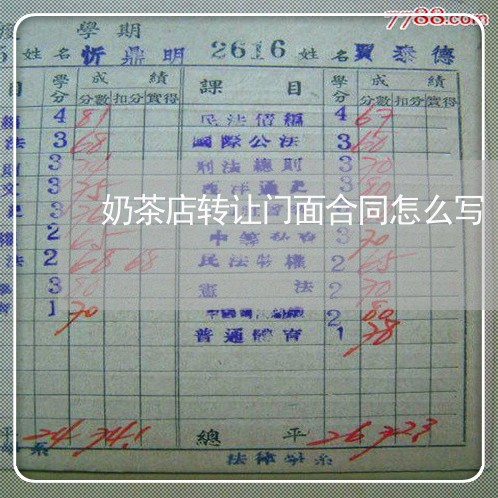 7788.com
學期
姓名 忻鼎明 2616 姓名 賈泰德
目 學分 成績 課目 學分 成績
分數 扣分 實得 分數 扣分 實得
4 81 民法債編 4 67
法 3 68 國際公法 3 60
3 刑法總則 3 70
3 75 西洋通史 3 80
奶茶店转让门面合同怎么写
2 65 3 70
法 2 68 68 民法物權 2 65
3 80 憲法 2 70
1 70 2 80
普通體育 1 78
平 24 74.1 總平 26 72.3
系 法律學系